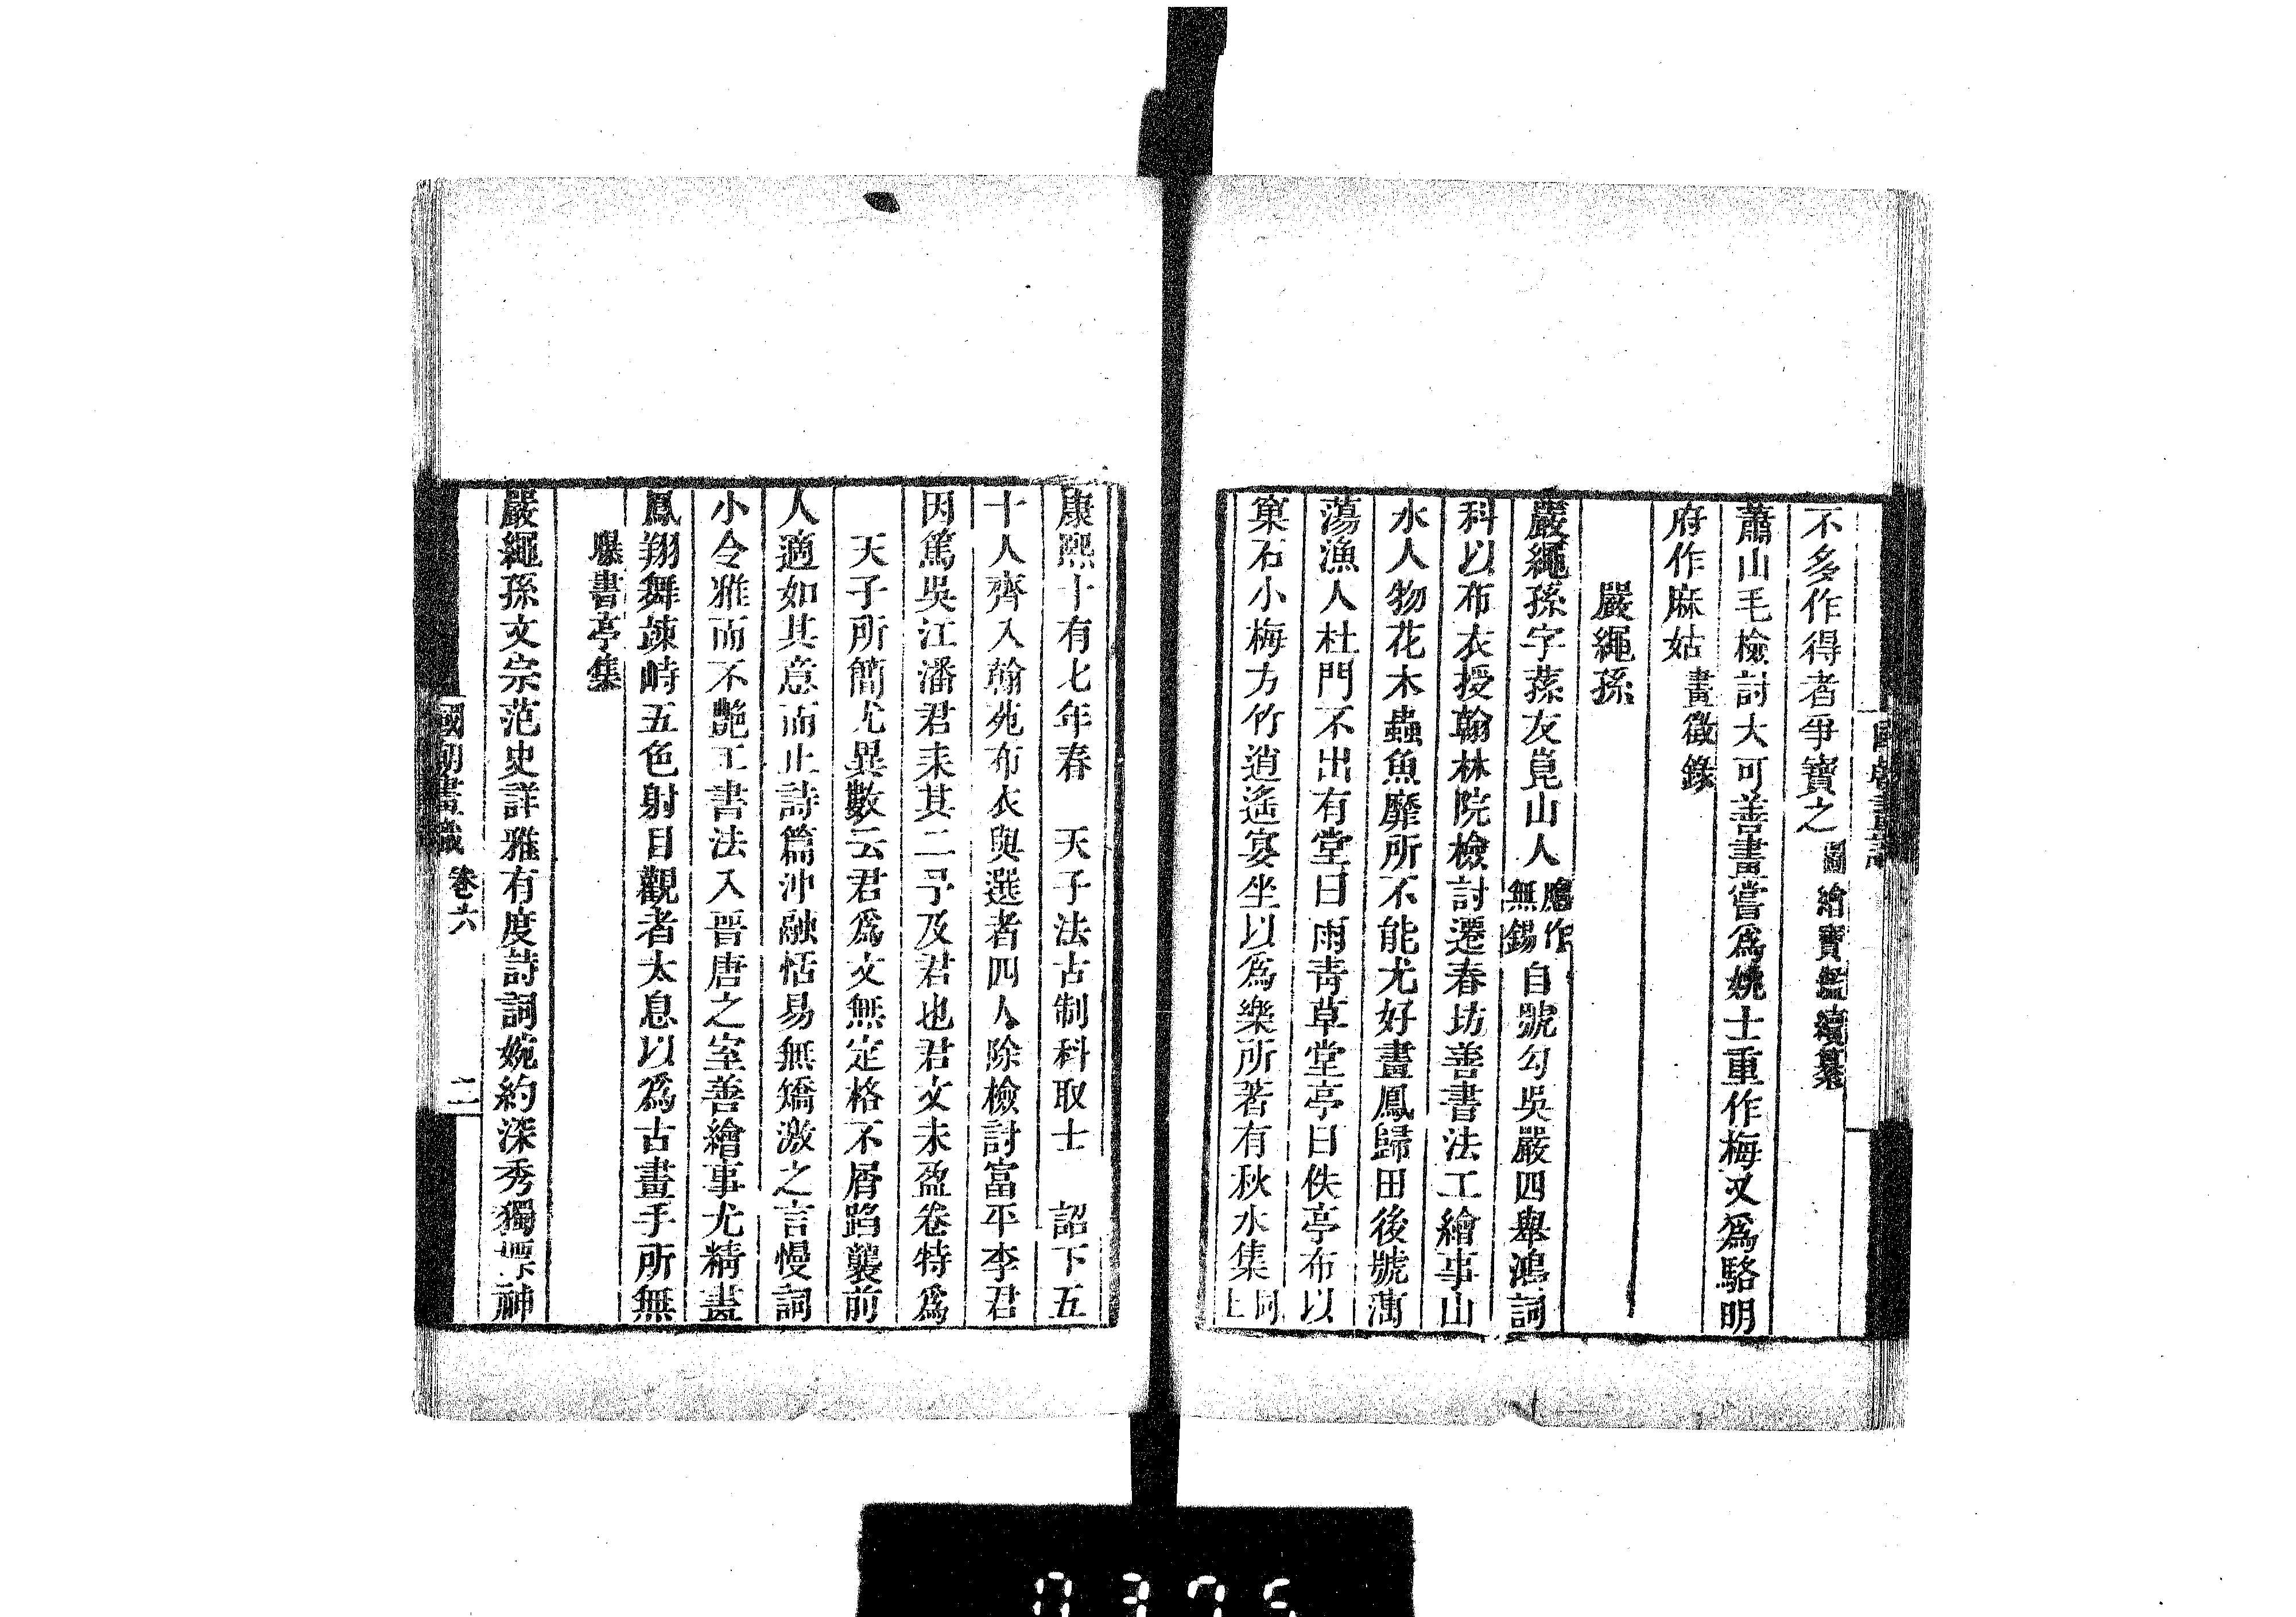 不多作得者爭寶之圖繪寶鑑續纂
蕭山毛檢討大可善畫嘗爲姚士重作梅又爲駱明
府作麻姑畫徵錄
嚴繩孫
嚴繩孫字蓀友崑山人應作無錫自號勾吳嚴四舉鴻詞
科以布衣授翰林院檢討遷春坊善書法工繪事山
水人物花木蟲魚靡所不能尤好畫鳳歸田後號藕
蕩漁人杜門不出有堂曰雨青草堂亭曰佚亭布以
窠石小梅方竹逍遙宴坐以爲樂所著有秋水集同上
康熙十有七年春 天子法古制科取士 詔下五
十人齊入翰苑布衣與選者四人除檢討富平李君
因篤吳江潘君耒其二予及君也君文未盈卷特爲
天子所簡尤異數云君爲文無定格不屑蹈襲前
人適如其意而止詩篇沖融恬易無矯激之言慢詞
小令雅而不艷工書法入晉唐之室善繪事尤精畫
鳳翔舞竦峙五色射目觀者太息以爲古畫手所無
曝書亭集
嚴繩孫文宗范史詳雅有度詩詞婉約深秀獨標神
國朝畫識 卷六 二
0375